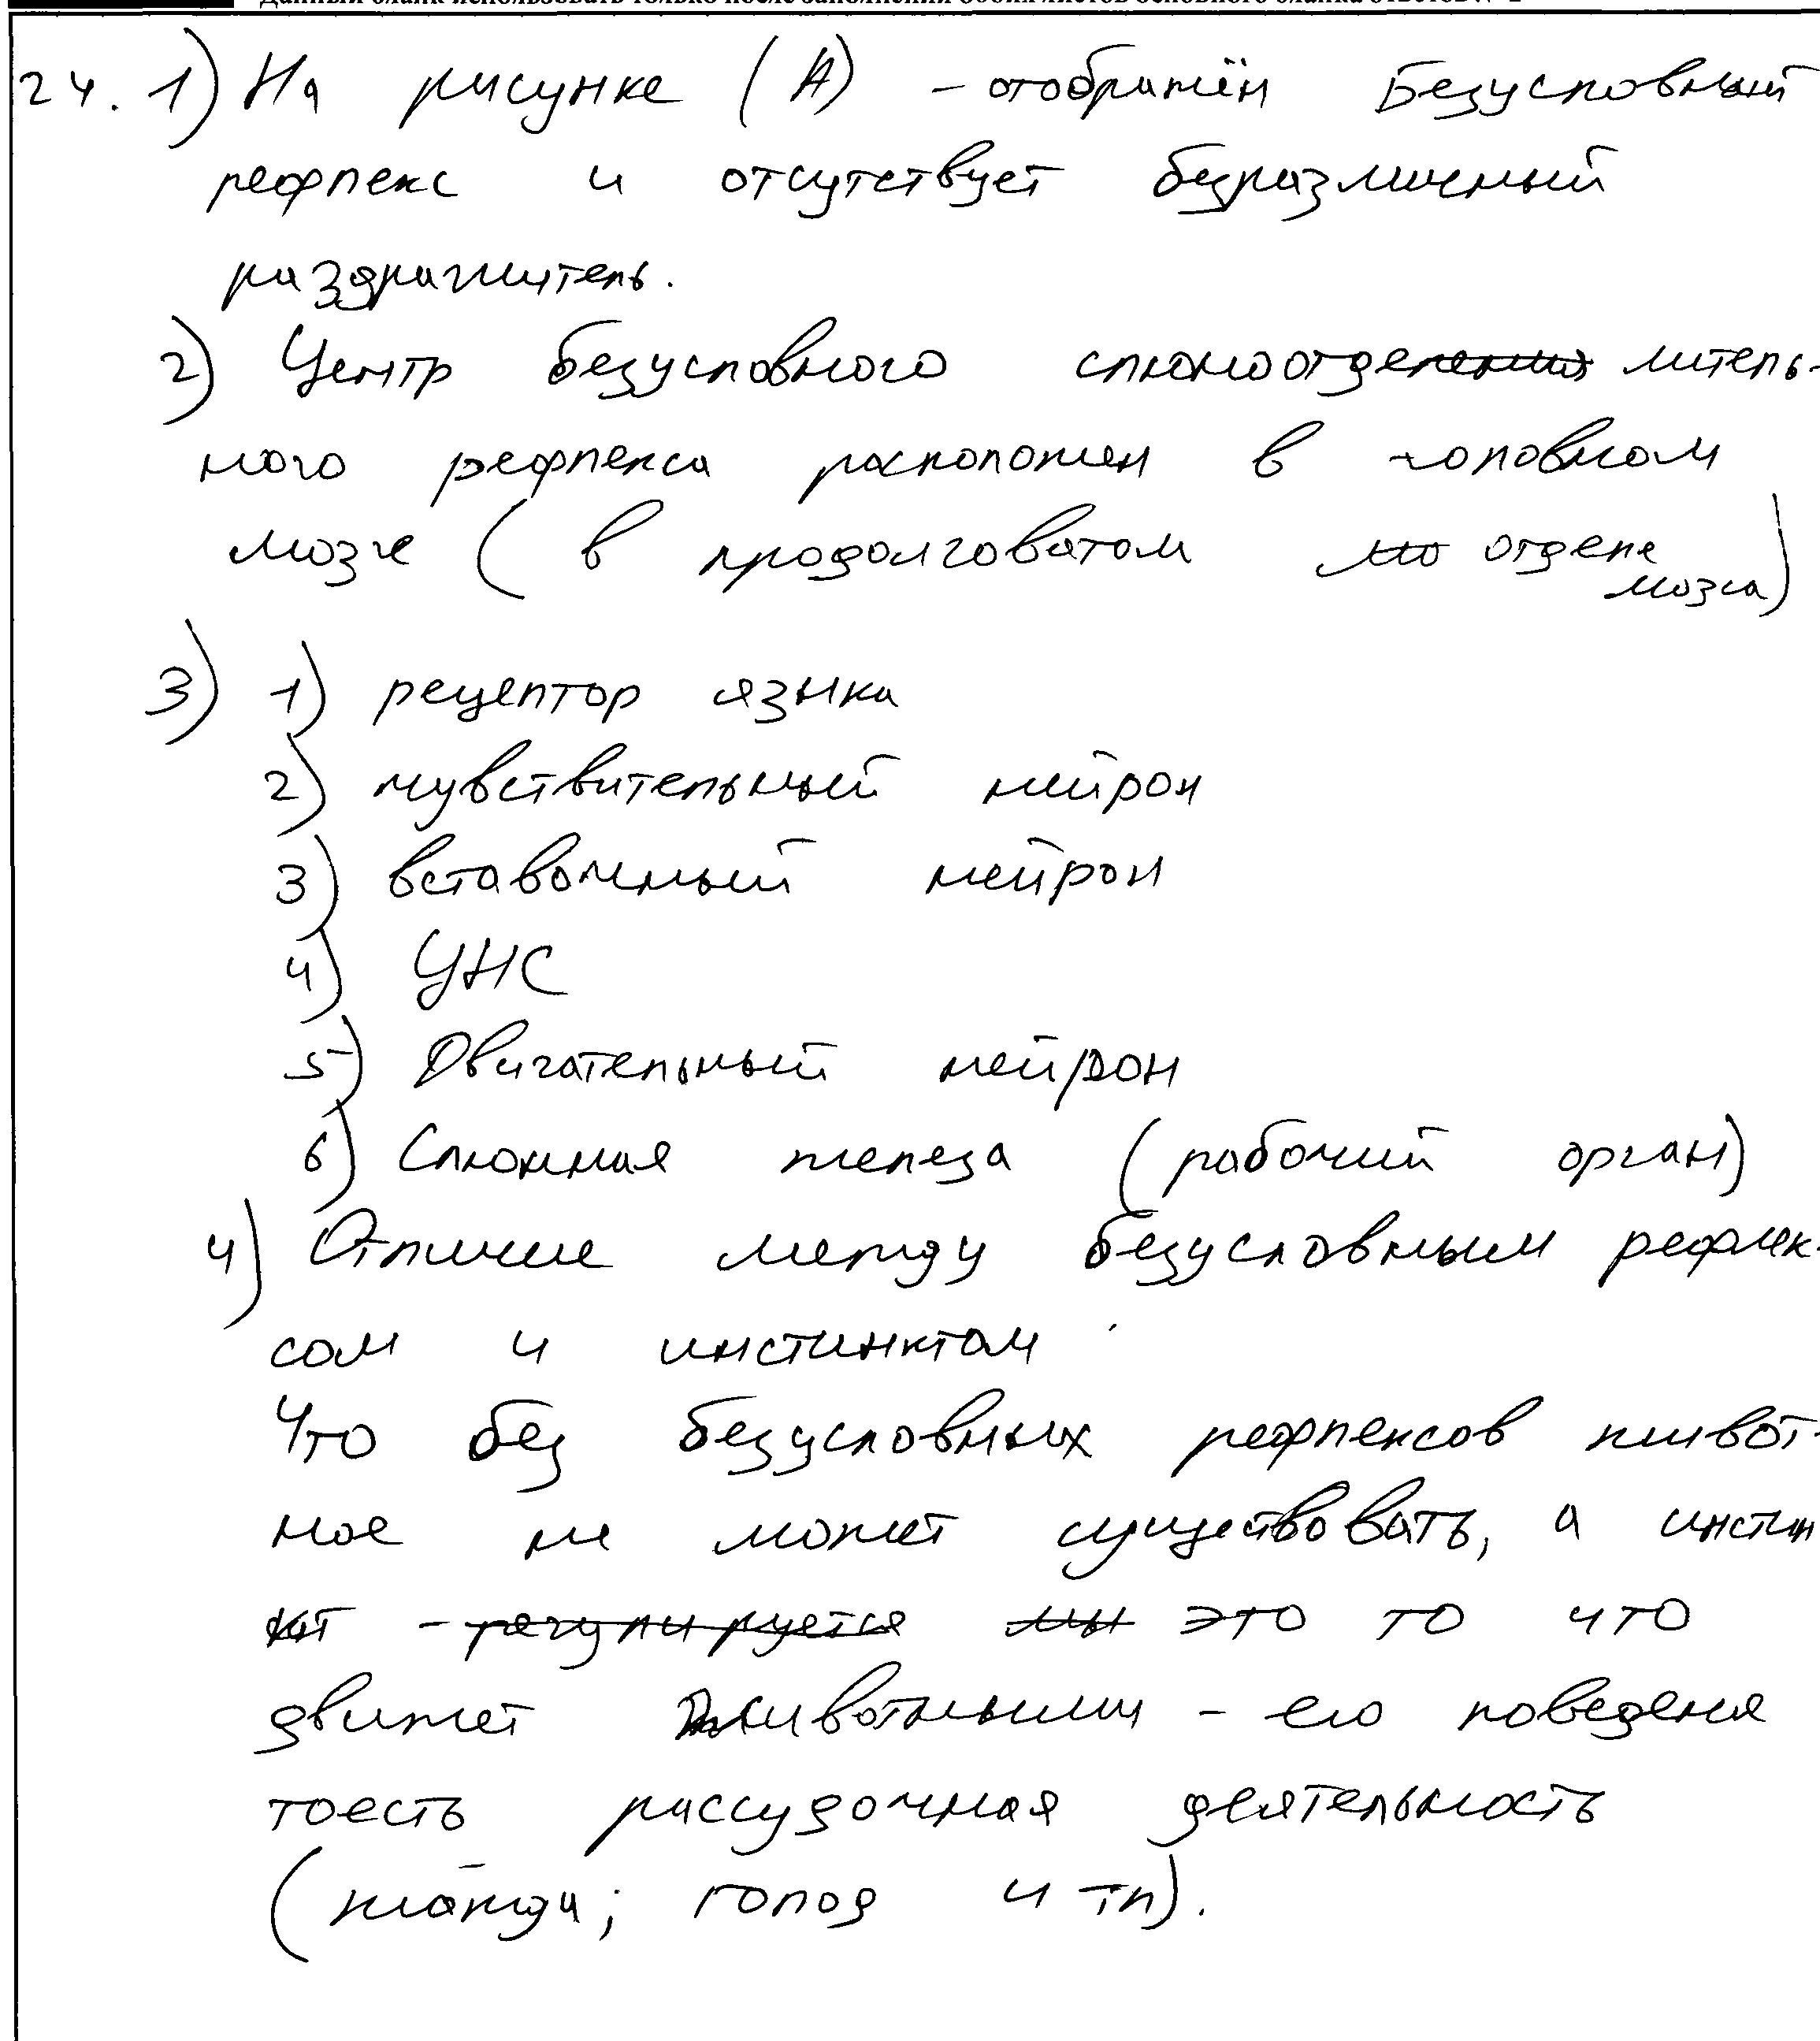 Данный бланк использовать только после заполнения обоих листов основного бланка ответов № 2
24. 1) На рисунке (А) - отображён Безусловный
рефлекс и отсутствует безразличный
раздражитель.
2) Центр безусловного слюноотделения литель-
ного рефлекса расположен в головном
мозге ( в продолговатом мо отделе
мозга)
3) 1) рецептор языка
2) чувствительный нейрон
3) вставочный нейрон
4) ЦНС
5) Двигательный нейрон
6) Слюнная железа (рабочий орган)
4) Отличие между безусловным рефлек-
сом и инстинктом
Что без безусловных рефлексов живот-
ное не может существовать, а инстин
кт - регулируется мы это то что
движет животными - его поведеня
тоесть рассудочная деятельность
(жажда; голод и тп).